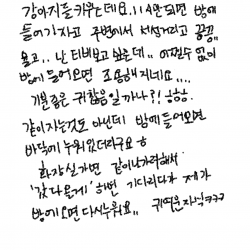 강아지들키우는데요.11시만 되면 방에
들어가자고 주변에서 서성거리고 끙끙
울고.. 난 티비보고싶은데.. 어쩔수 없이
방에 들어오면 조용해지네요....
기분좋은 귀찮음일까나?! ㅎㅎ.
같이자는것도 아닌데 방에 들어오면
바닥에 누워있더라구요ㅎ
화장실가면 같이나가려해서
'갔다올게' 하면 기다리다가 제가
방에오면 다시누워요.. 귀여운자식ㅋㅋㅋ